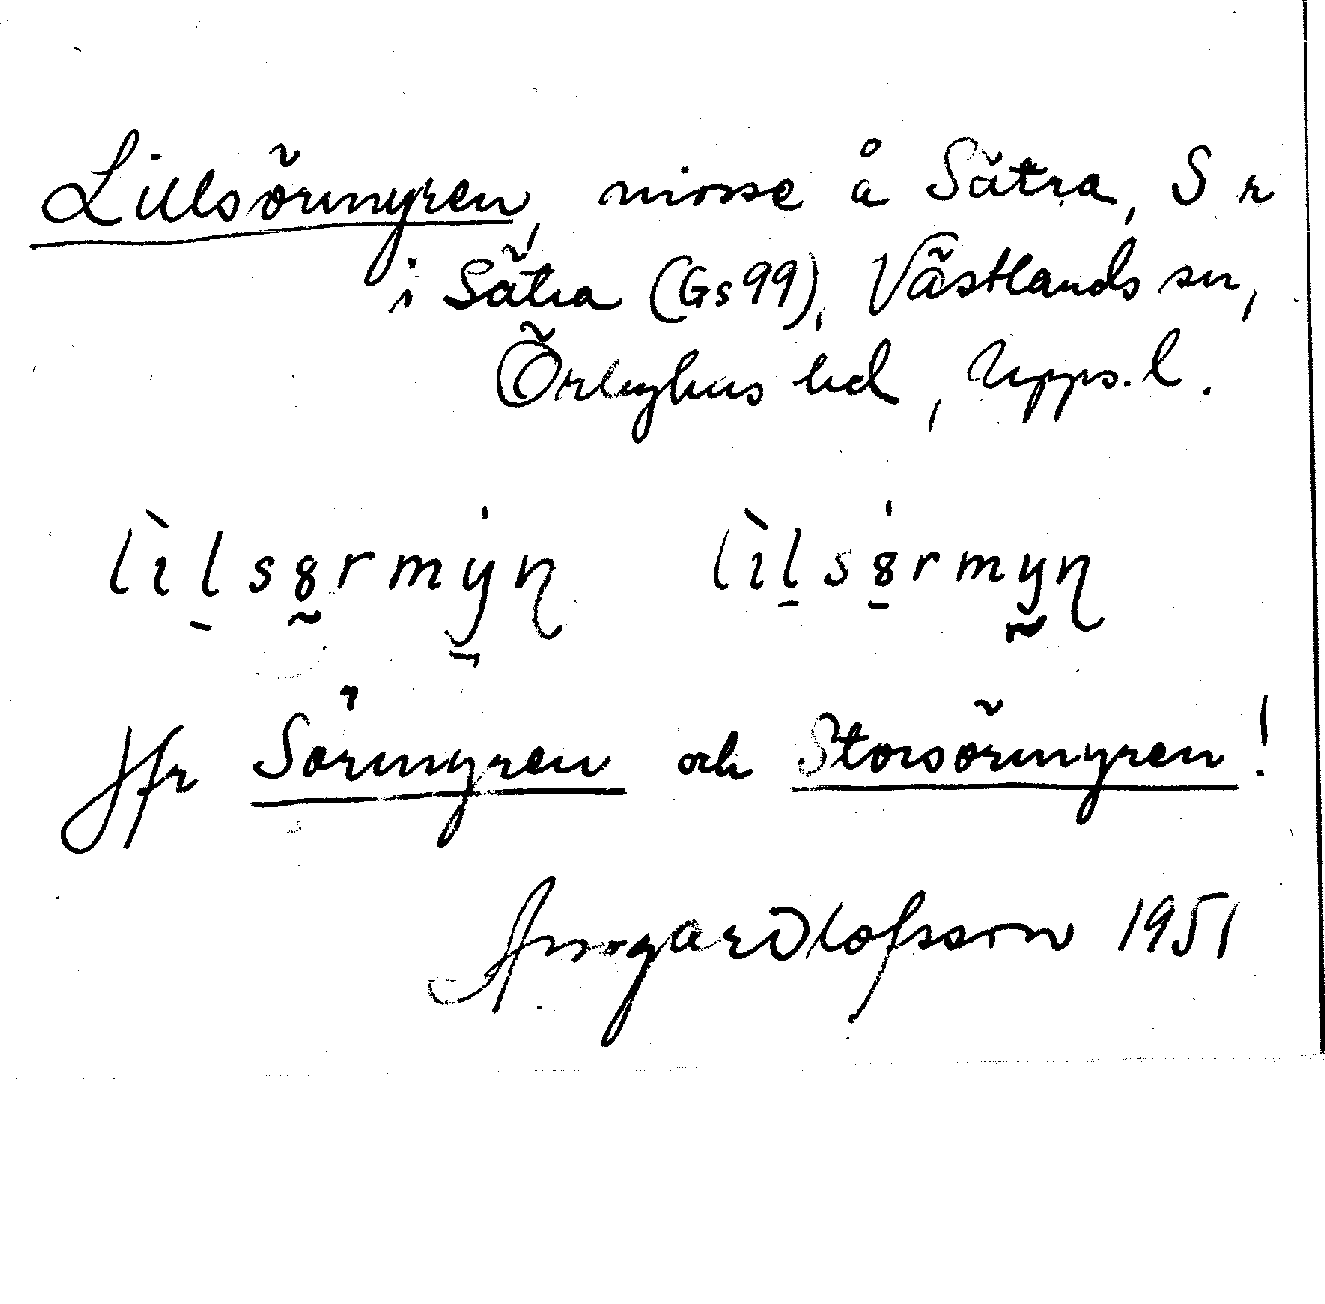 Lillsörmyren, mosse å Sätra, S r
i Sätra (Gs99), Västlands sn,
Örbyhus hd, Upps. l.
Jfr Sörmyren och Storsörmyren!
Ansgar Olofsson 1951